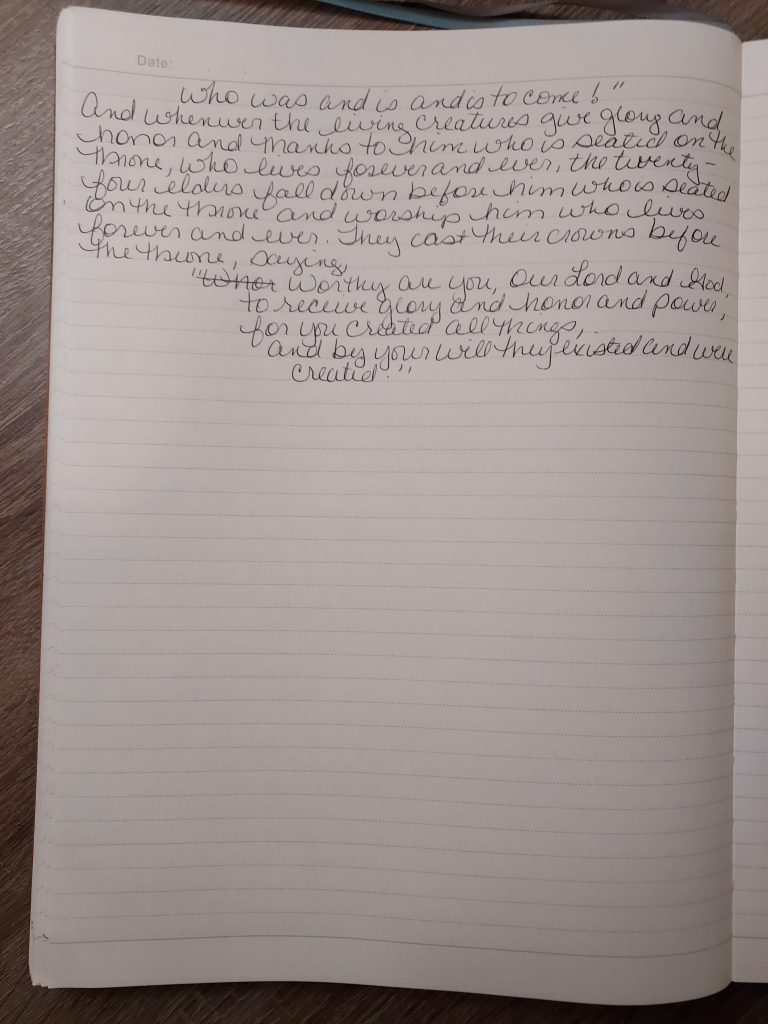 Date:
who was and is and is to come!"
And whenever the living creatures give glory and
honor and thanks to him who is seated on the
throne, who lives forever and ever, the twenty-
four elders fall down before him who is seated
on the throne and worship him who lives
forever and ever. They cast their crowns before
the throne, saying,
"Whor Worthy are you, Our Lord and God,
to receive glory and honor and power,
for you created all things,
and by your will they existed and were
created."